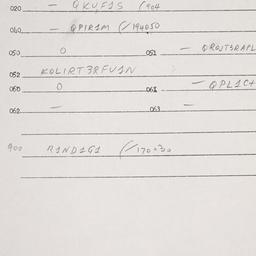 020 — QKVF1S (904
040 — QPIR1M (/194050
050 0 051 — QRQJT3RAPL
052 KOLIRT3RFU1N
060 0 061 — QPL1C+
062 — 063 —
900 R1ND1G1 (/170030